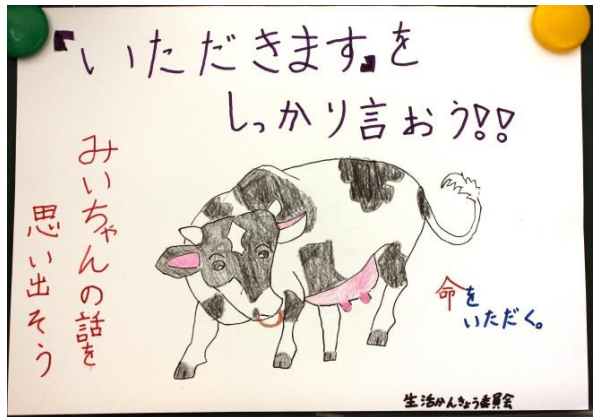 『いただきます』を
しっかり言おう!!
みいちゃんの話を
思い出そう
命を
いただく。
生活かんきょう委員会